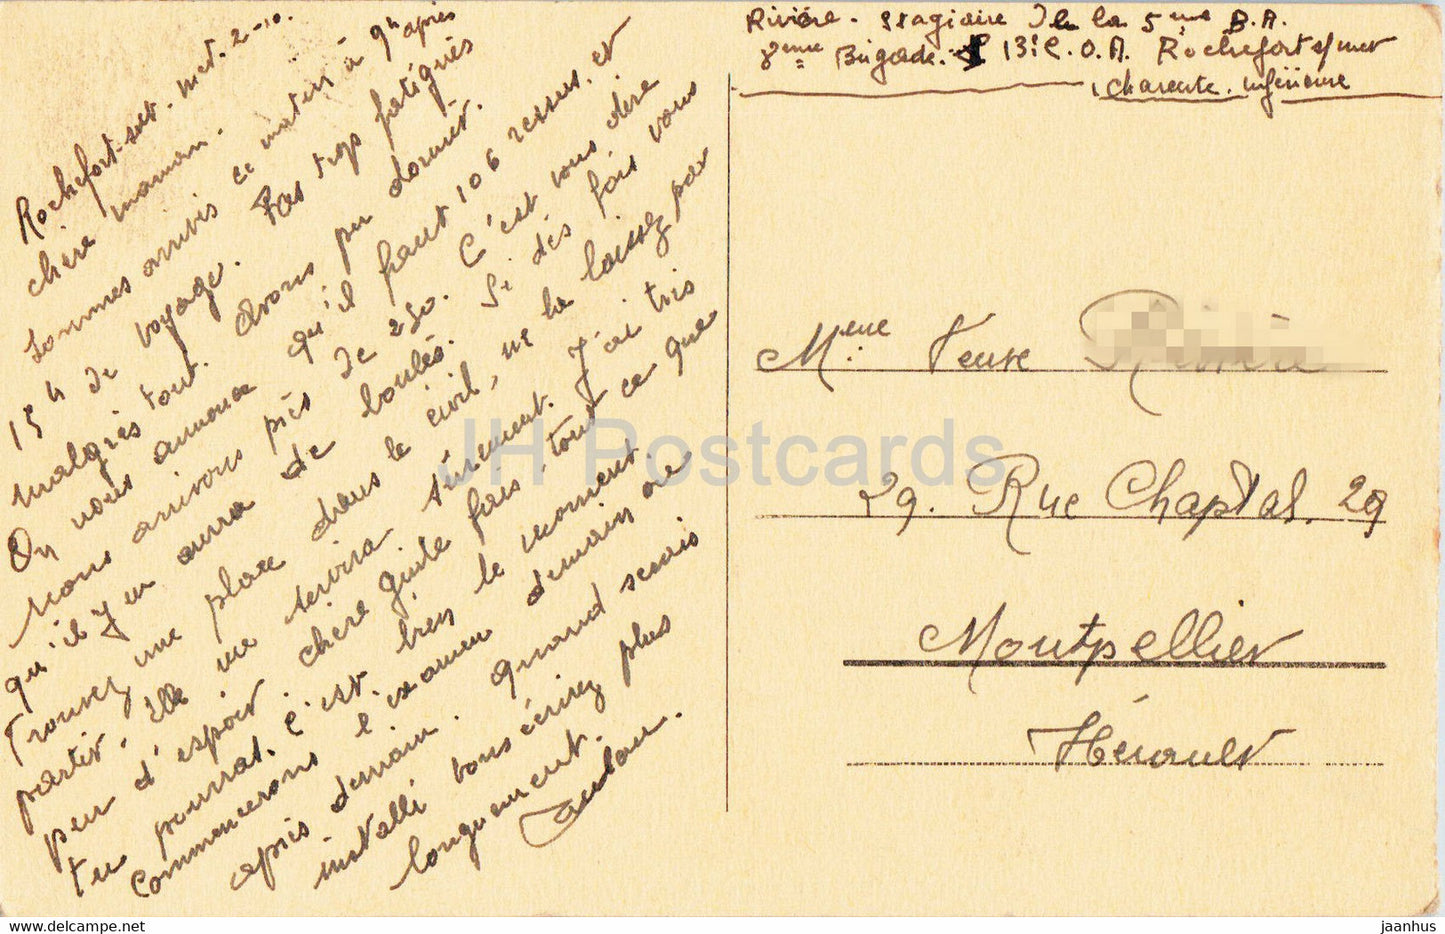 Rochefort-sur-met. 2-10.
chère maman.
Sommes arrivés ce matin à 9h après
15h de voyage. Pas trop fatigués
malgrès tout. Avons pu dormir.
On nous annonce qu'il faut 106 reçus. et
nous arrivons près de 250. C'est vous dire
qu'il y en aura de boulés. Si des fois vous
Trouvez une place dans le civil, ne la laissez pas
partir. Elle me servira sûrement. J'ai très
peu d'espoir chère guide fais, tout ce que
tu pourras. C'est bien le moment.
Commencerons l'examen demain ou
après demain. Quand serais
installé vous écrirez plus
longuement.
Rivière. Stagiaire 71 de la 5eme B.A.
8eme Brigade. 13 C.O.A. Rochefort s/ mer
Charente. Inférieure
Meme Veuve
29. Rue Chaptal. 29
Montpellier
Hérault
JH Postcards
www.hippostcard.com
jaanhus